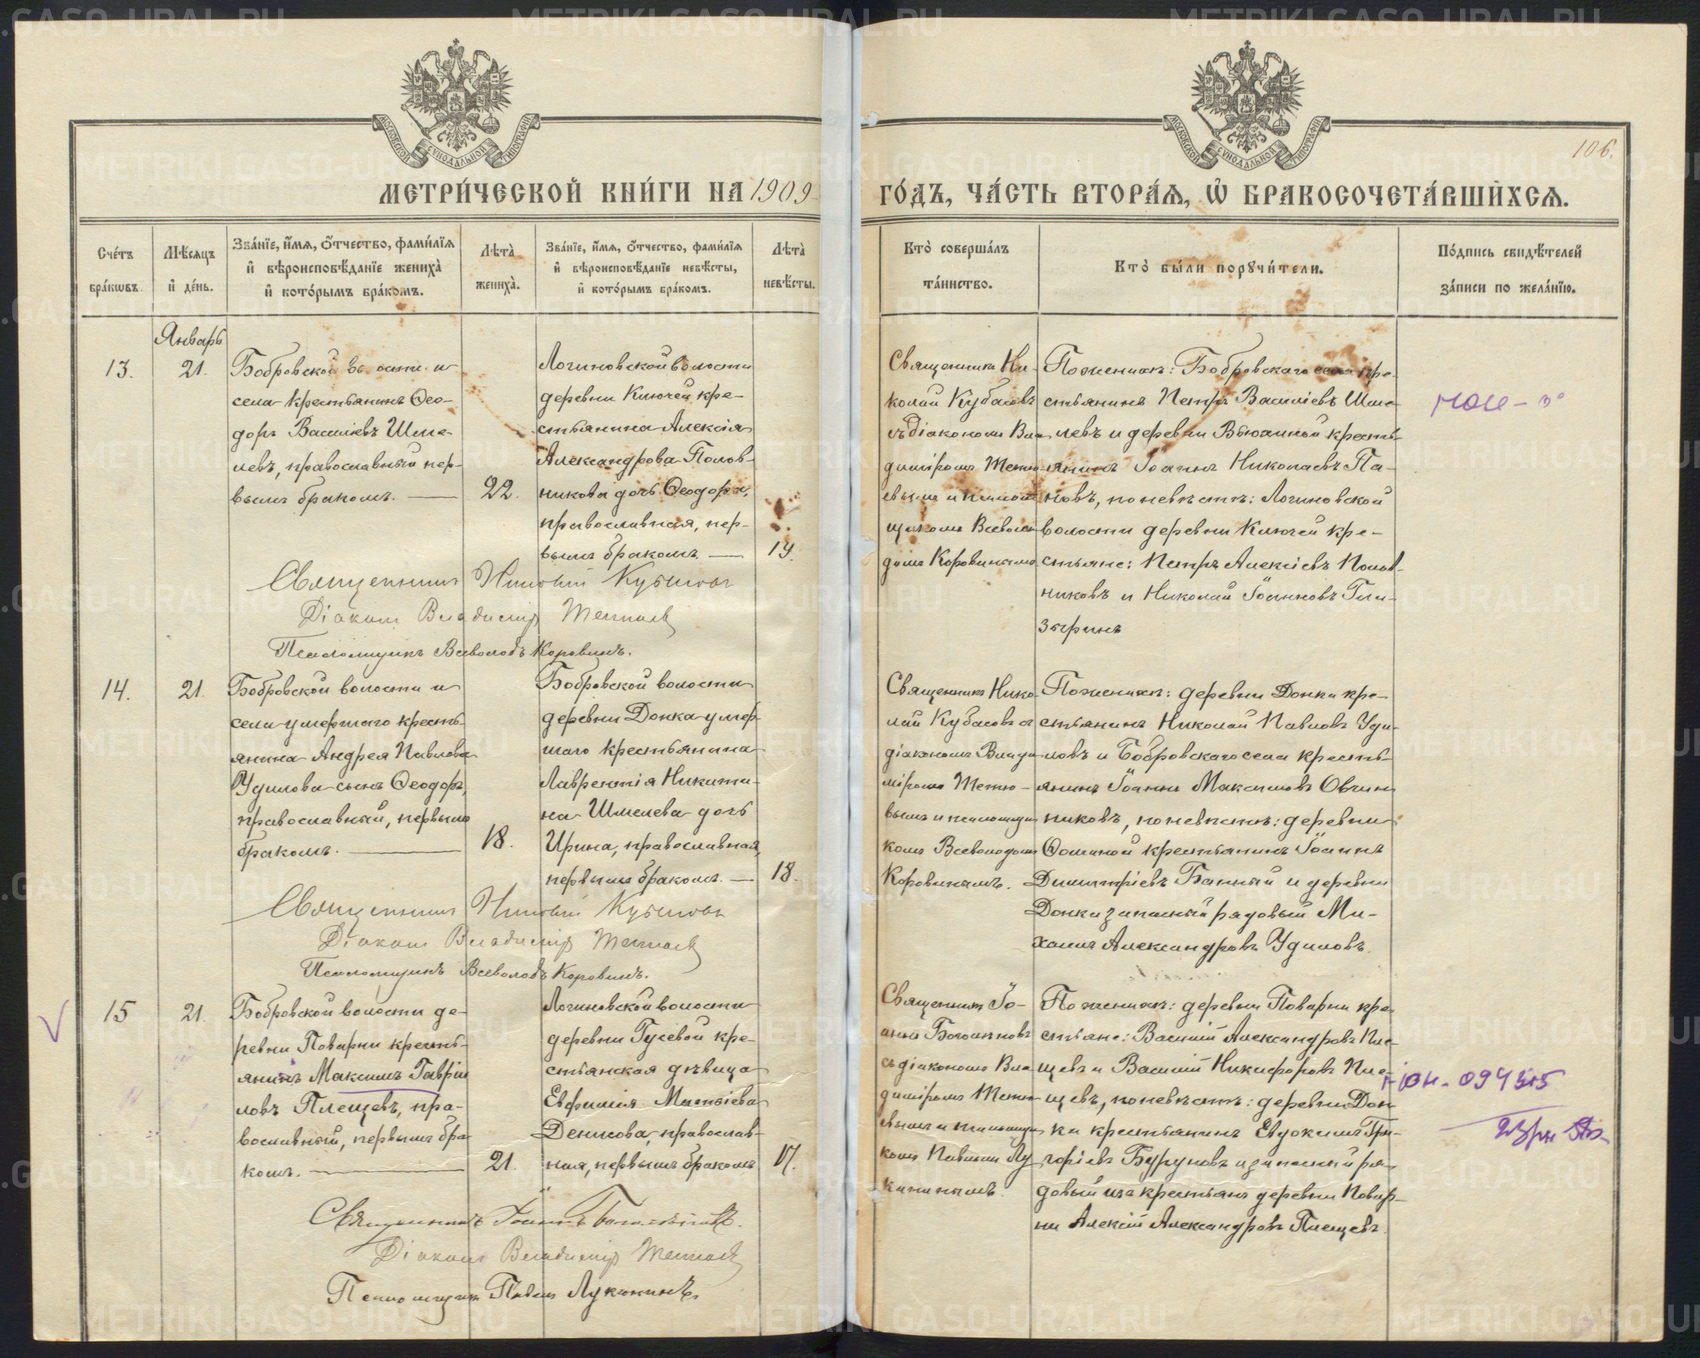 106.
МЕТРИ́ЧЕСКОЙ КНИ́ГИ НА 1909
ГО́ДЪ, ЧА́СТЬ ВТОРА́Ѧ, Ѡ БРАКОСОЧЕТА́ВШИХСѦ.
Сче́тъ бра́кѡвъ.
Мѣ́сяцъ и де́нь.
Зва́нїе, и́мѧ, о́тчество, фами́лїѧ
и вѣроисповѣ́данїе жениха̀
и кото́рымъ бра́комъ.
Лѣта̀ жениха̀.
Зва́нїе, и́мѧ, о́тчество, фами́лїѧ
и вѣроисповѣ́данїе невѣ́сты,
и кото́рымъ бра́комъ.
Лѣта̀ невѣ́сты.
Кто̀ соверша́лъ та́инство.
Кто̀ бы́ли порꙋчи́тели.
По́дпись свидѣ́телей за́писи по жела́нїю.
Январь
13.
21.
Бобровской волости и
села крестьянинъ Ѳео-
доръ Василіевъ Шме-
левъ, православный пер-
вымъ бракомъ.
22.
Логиновской волости
деревни Ключей кре-
стьянина Алексія
Александрова Полов-
никова дочь Ѳеодора,
православная, пер-
вымъ бракомъ
19.
Священникъ Ни-
колай Кубасовъ
съ діакономъ Вла-
диміромъ Тетю-
евымъ и псалом-
щикомъ Всеволо-
домъ Коровинымъ
По женихѣ: Бобровскаго села кре-
стьянинъ Петръ Василіевъ Шме-
левъ и деревни Вьюхиной кресть-
янинъ Іоаннъ Николаевъ Па-
новъ, по невѣстѣ: Логиновской
волости деревни Ключей кре-
стьяне: Петръ Алексіевъ Полов-
никовъ и Николай Іоанновъ Гла-
зыринъ
Священникъ Николай Кубасовъ
Діаконъ Владиміръ Тетюевъ
Псаломщикъ Всеволодъ Коровинъ.
14.
21.
Бобровской волости и
села умершаго кресть-
янина Андрея Павлова
Удилова сынъ Ѳеодоръ,
православный, первымъ
бракомъ.
18.
Бобровской волости
деревни Донка умер-
шаго крестьянина
Лаврентія Никити-
на Шмелева дочь
Ирина, православная,
первымъ бракомъ.
18.
Священникъ Нико-
лай Кубасовъ съ
діакономъ Влади-
міромъ Тетюе-
вымъ и псаломщи-
комъ Всеволодомъ
Коровинымъ.
По женихѣ: деревни Донки кре-
стьянинъ Николай Павловъ Уди-
ловъ и Бобровскаго села кресть-
янинъ Іоаннъ Максимовъ Овчин-
никовъ, по невѣстѣ: деревни
Ѳоминой крестьянинъ Іоаннъ
Димитріевъ Банный и деревни
Донки запасный рядовый Ми-
хаилъ Александровъ Удиловъ.
Священникъ Николай Кубасовъ
Діаконъ Владиміръ Тетюевъ
Псаломщикъ Всеволодъ Коровинъ.
15
21.
Бобровской волости де-
ревни Поварни кресть-
янинъ Максимъ Гаврі-
ловъ Плещевъ, пра-
вославный, первымъ бра-
комъ.
21.
Логиновской волости
деревни Гусевой кре-
стьянская дѣвица
Евфимія Матѳіева
Денисова, православ-
ная, первымъ бракомъ
17.
Священникъ Іо-
аннъ Богоявленскій
съ діакономъ Вла-
диміромъ Тетю-
евымъ и псаломщи-
комъ Павломъ Лу-
канинымъ.
По женихѣ: деревни Поварни кре-
стьяне: Василій Александровъ Пле-
щевъ и Василій Никифоровъ Пле-
щевъ, по невѣстѣ: деревни Дон-
ки крестьянинъ Евдокимъ Гри-
горіевъ Бурухинъ и запасный ря-
довый изъ крестьянъ деревни Повар-
ни Алексій Александровъ Плещевъ
Священникъ Іоаннъ
Діаконъ Владиміръ Тетюевъ
Псаломщикъ Павелъ Луканинъ.
METRIKI.GASO-URAL.RU